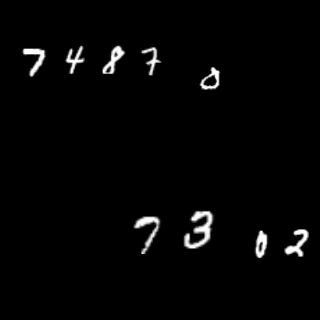 7 4 8 7 0
7 3 0 2